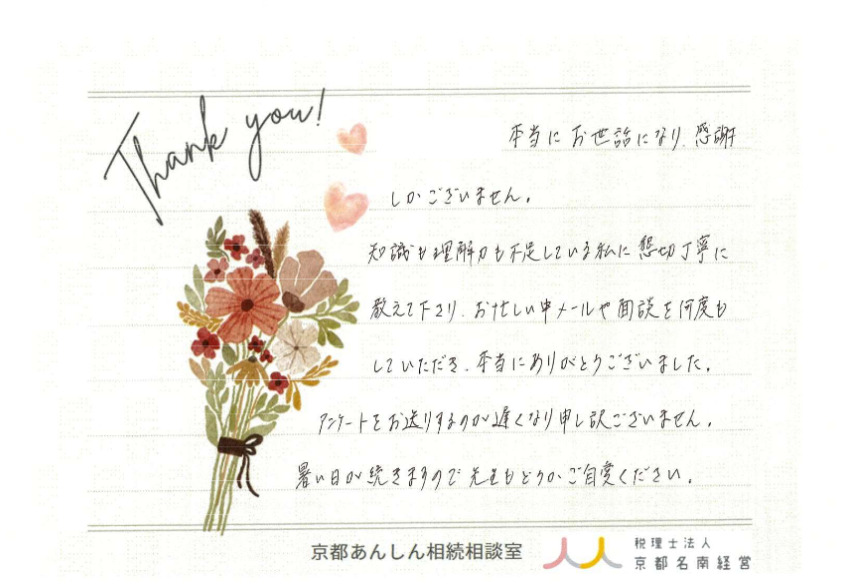 Thank you!
本当にお世話になり、感謝
しかございません。
知識も理解力も不足している私に懇切丁寧に
教えて下さり、お忙しい中メールや面談を何度も
していただき、本当にありがとうございました。
アンケートをお送りするのが遅くなり申し訳ございません。
暑い日が続きますので先生もどうかご自愛ください。
京都あんしん相続相談室
税理士法人
京都名南経営